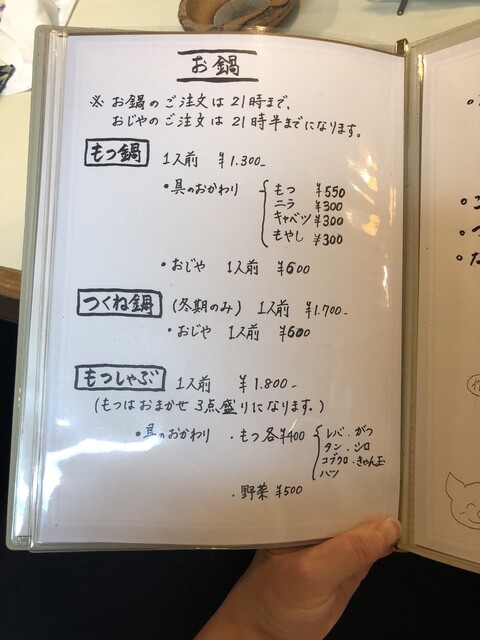 お鍋
※ お鍋のご注文は21時まで、
おじやのご注文は21時半までになります。
もつ鍋 1人前 ¥1.300-
・具のおかわり
もつ ¥550
ニラ ¥300
キャベツ ¥300
もやし ¥300
・おじや 1人前 ¥600
つくね鍋 (冬期のみ) 1人前 ¥1.700-
・おじや 1人前 ¥600
もつしゃぶ 1人前 ¥1.800-
(もつはおまかせ3点盛りになります。)
・具のおかわり ・もつ各¥400
レバ・がつ
タン・シロ
コブクロ・きゃん玉
ハツ
・野菜 ¥500